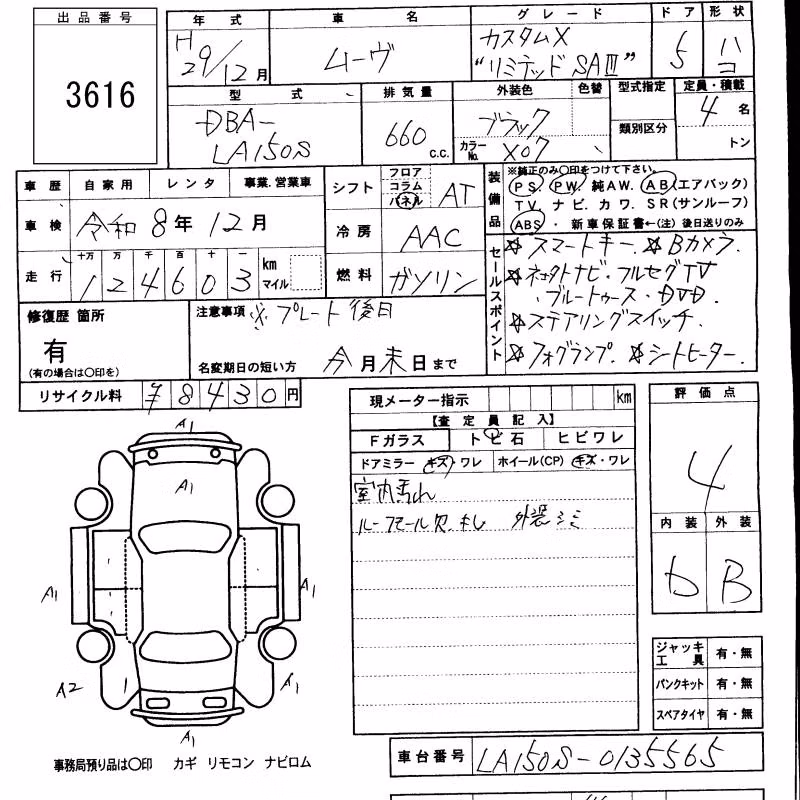 出品番号
3616
年式
H29/12月
車名
ムーヴ
グレード
カスタムX
"リミテッド SAⅢ"
ドア
5
形状
ハコ
型式
DBA-
LA150S
排気量
660 c.c.
外装色
ブラック
色替
カラーNo. X07
型式指定
類別区分
定員・積載
4 名
トン
車歴 自家用 レンタ 事業.営業車
車検 令和 8年 12月
走行 十万 万 千 百 十 一
124603 km マイル
シフト フロア コラム パネル AT
冷房 AAC
燃料 ガソリン
装備品
※純正のみ○印をつけて下さい。
PS. PW. 純AW. AB(エアバック)
TV. ナビ. カワ. SR(サンルーフ)
ABS ・ 新車保証書←(注)後日送りのみ
セールスポイント
☆スマートキー. ☆Bカメラ.
☆ネットナビ・フルセグTV
・ブルートゥース・DVD.
☆ステアリングスイッチ.
☆フォグランプ. ☆シートヒーター.
修復歴 箇所
有
(有の場合は○印を)
注意事項 ※プレート後日
名変期日の短い方 今月末日まで
リサイクル料 ¥8430円
現メーター指示 km
【査定員記入】
Fガラス トビ石 ヒビワレ
ドアミラー キズ・ワレ ホイール(CP) キズ・ワレ
室内汚れ
ルーフモール欠.キレ 外装シミ
評価点
4
内装 外装
D B
ジャッキ工具 有・無
パンクキット 有・無
スペアタイヤ 有・無
A1
A1
A1
A1
A2
1
A1
A1
事務局預り品は○印 カギ リモコン ナビロム
車台番号 LA150S-0135565